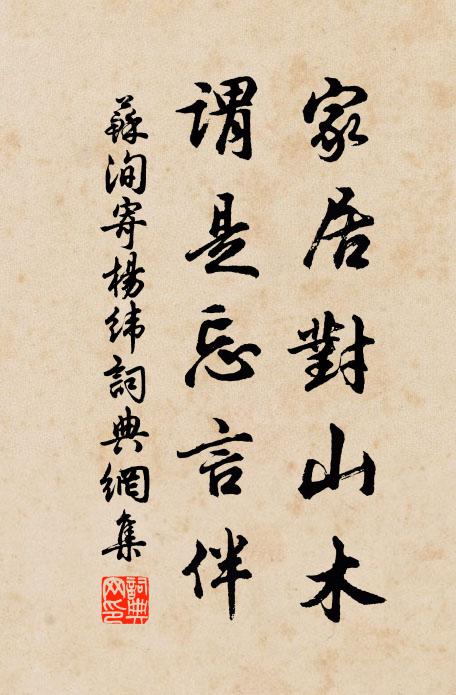 家居對山木
謂是忘言伴
蘇洵寄楊緯詞典網集
詞典網印